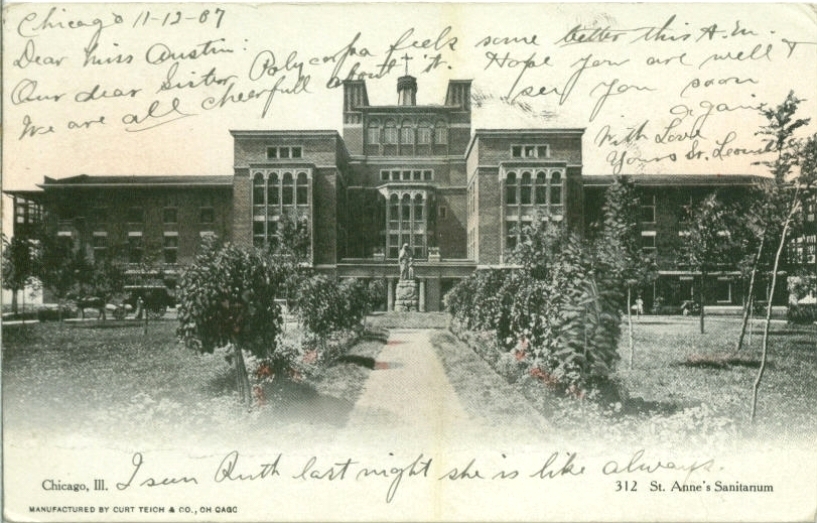 Chicago 11-12-07
Dear Miss Austin:
Our dear Sister Polycarpa feels some better this A.M.
We are all cheerfull about it. Hope you are well &
see you soon
again
With Love
Yours Sr.
I seen Ruth last night she is like always.
Chicago, Ill.
312 St. Anne's Sanitarium
MANUFACTURED BY CURT TEICH & CO., CHICAGO